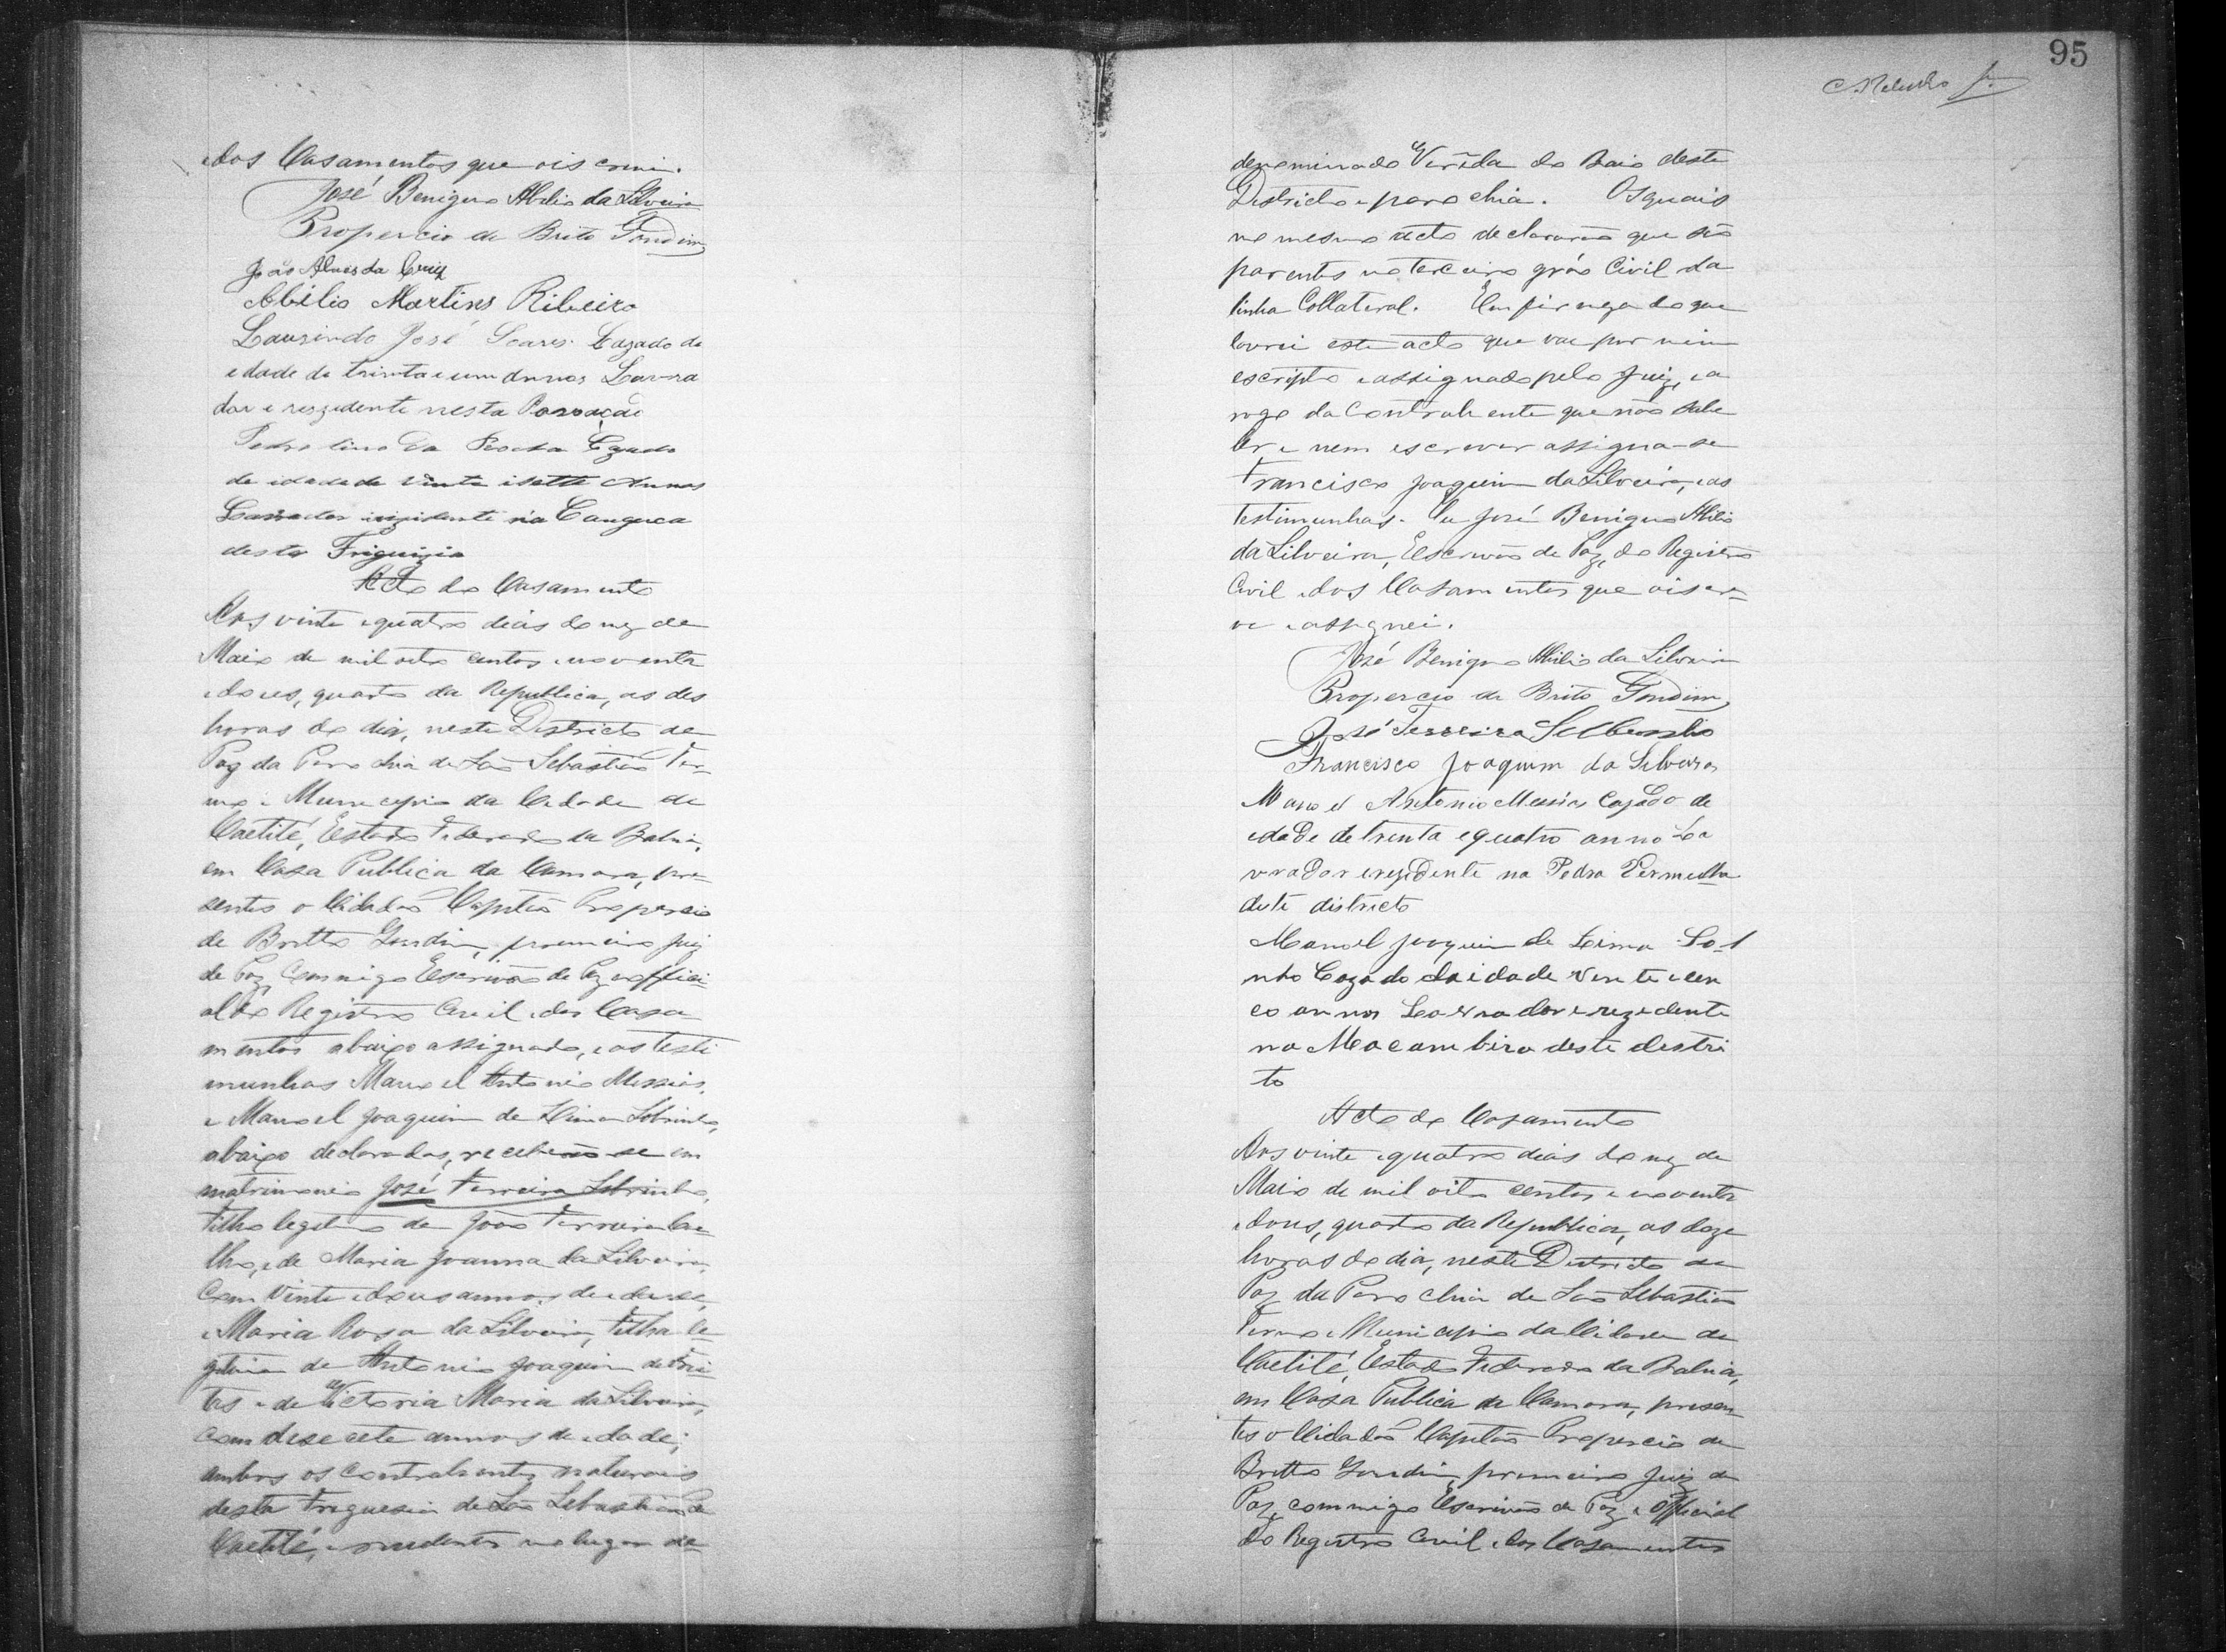 e dos Casamentos que o iscrevi.
José Benigno Abilio da Silveira
Propercio de Brito Gondim
João Alves da Cruz
Abilio Martins Ribeiro
Laurindo José Soares Cazado de
edade de trinta e um annos Lavra
dor e rezidente nesta Povoação
Pedro Lino da Rocha Cazado
de idade de vinte i sette Annos
Lavrador irizidente na Canguca
desta Friguizia
Acto de Casamento
Aos vinte e quatro dias do mez de
Maio de mil oito centos e noventa
e dous, quarto da Republica, as des
horas do dia, neste Districto de
Paz da Parochia de São Sebastião Ter-
mo e Municipio da Cidade de
Caetité, Estado Federado da Bahia,
em Casa Publica da Camara, pre-
sentes o Cidadão Capitão Propercio
de Britto Gondim, primeiro Juiz
de Paz, Commigo Escrivão de Paz e offici-
al do Registro Civil e dos Casa
mentos abaixo assignado, e as testi
munhas Manoel Antonio Messias,
e Manoel Joaquim de Lima Sobrinho,
abaixo declaradas, receberão-se em
matrimonio José Ferreira Sobrinho,
filho legitimo de João Ferreira Coe-
lho, e de Maria Joanna da Silveira,
Com vinte e dous annos de edade,
e Maria Rosa da Silveira, filha le-
gitima de Antonio Joaquim de Frei-
tas e de Victoria Maria da Silveira,
com desecete annos de edade;
ambos os contrahentes naturais
desta Freguesia de São Sebastião de
Caetité, e residentes no lugar de-
95
denominado Verêda do Baio deste
Districto e parochia. Os quais
no mesmo acto declararão que são
parentes no terceiro gráo Civil da
linha Collateral. Em firmeza do que
lavrei este acto que vae por mim
escripto e assignado pelo Juiz, e a
rogo da Contrahente que não sabe
ler e nem escrever assigna-se
Francisco Joaquim da Silveira, e as
testimunhas. Eu José Benigno Abilio
da Silveira, Escrivão de Paz, do Registro
Civil e dos Casamentos que o iscre-
vi e assignei.
José Benigno Abilio da Silveira
Propercio de Brito Gondim
José Ferreira Sobrinho
Francisco Joaquim da Silveira
Manoel Antonio Messias Cazado de
edade de trenta e quatro anno La
vrador erezidente na Pedra Vermelha
deste districto
Manoel Joaquim de Leima So-
nho Cazado da idade Vente e cin
co annos Lavrador e rezedente
na Macambira deste destri
to
Acto de Casamento
Aos vinte e quatro dias do mez de
Maio de mil oito centos e noventa
e dous, quarto da Republica, as doze
horas do dia, neste Districto de
Paz da Parochia de São Sebastião
Termo e Municipio da Cidade de
Caetité, Estado Federado da Bahia,
em Casa Publica da Camara, presen-
tes o Cidadão Capitão Propercio de
Britto Gondim, primeiro Juiz de
Paz, commigo Escrivão de Paz e Official
do Registro Civil e dos Casamentos